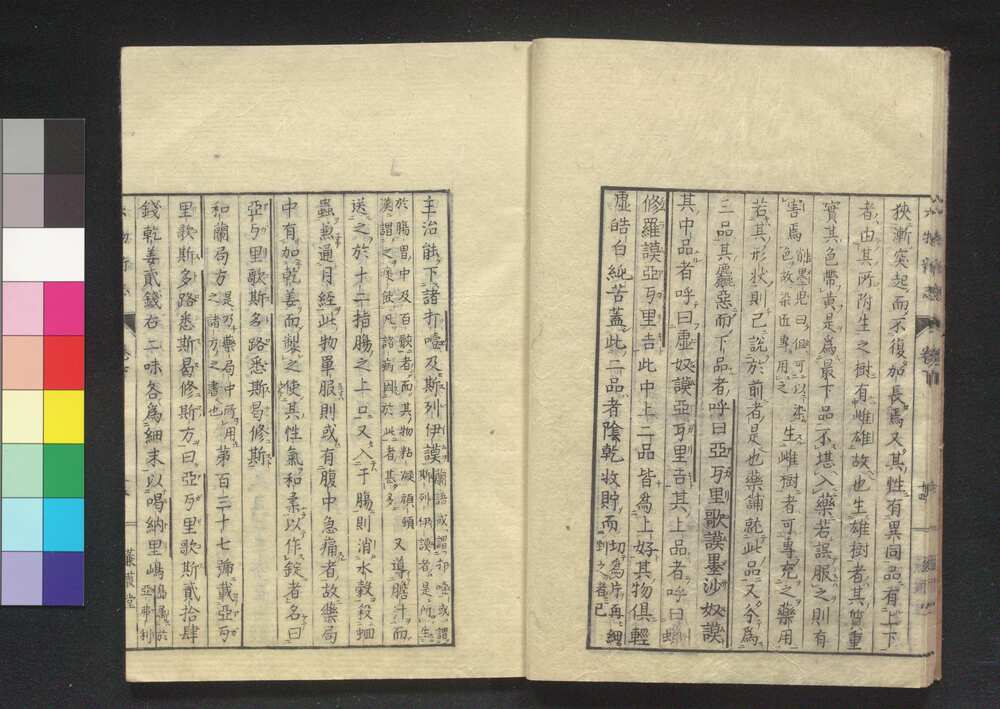 狹漸突起而不復加長焉又其性有異同品有上下
者由其所附生之樹有雌雄故也生雄樹者其質重
實其色帶黃是爲最下品不堪入藥若誤服之則有
害焉
生雌樹者可專充之藥用
若其形狀則已說於前者是也藥鋪就此品又分爲
三品其麤惡而下品者呼曰亞歹里歌謨墨沙奴謨
其中品者呼曰虛奴謨亞歹里吉其上品者呼曰
修羅謨亞歹里吉此中上二品皆爲上好其物俱輕
虛皓白純苦蓋此二品者陰乾收貯而切爲片再
主治能下諸打噎及斯列伊謨
於腸胃中及百骸者而其物粘凝頑頓
漢謂之痰飲凡諸病因於此者甚多
又導膽汁而
送之於十二指腸之上口又入于腸則消水穀殺蛔
蟲兼通月經此物單服則或有腹中急痛者故藥局
中有加乾姜而製之使其性氣和柔以作錠者名曰
亞歹里歌斯多路悉斯曷修斯
和蘭局方
是乃藥局中所用
之諸方之書也
第百三十七藥載亞歹
里歌斯多路悉斯曷修斯方曰亞歹里歌斯貳拾肆
錢乾姜貳錢右二味各爲細末以喝納里嶋